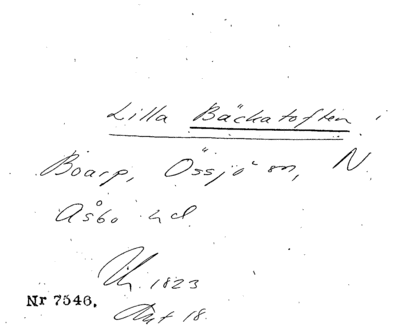 Lilla Bäckatoften i
Boarp, Össjö sn, N.
Åsbo hd
1823
Nr 7546.
Akt 18.